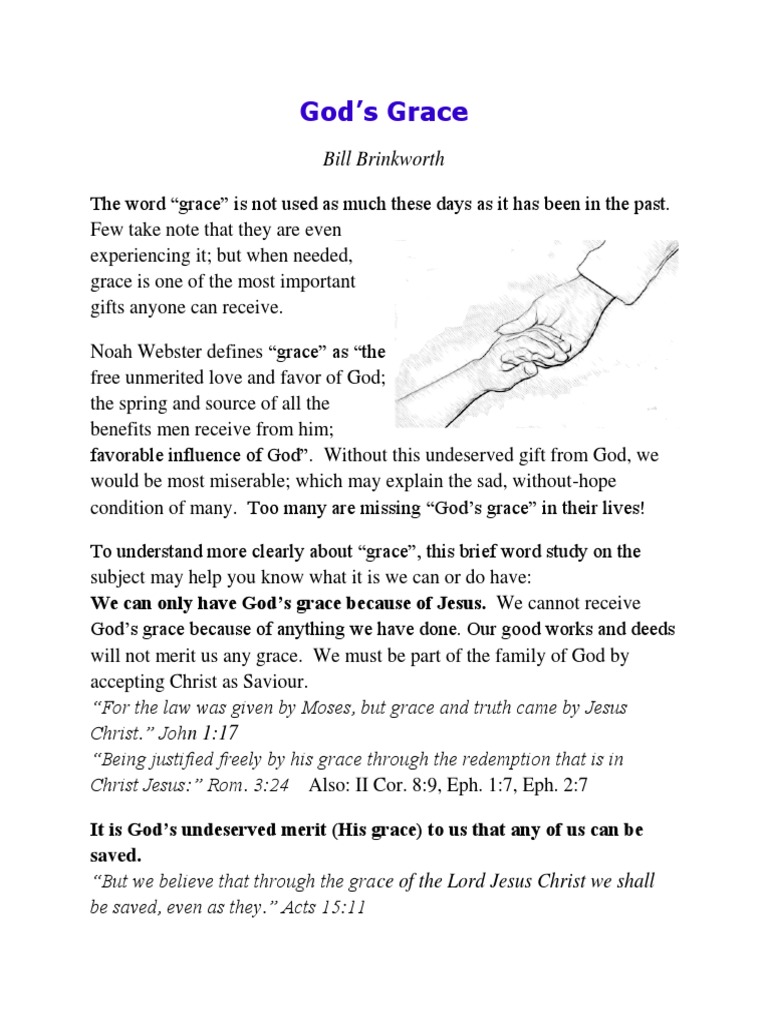 God’s Grace
Bill Brinkworth
The word “grace” is not used as much these days as it has been in the past.
Few take note that they are even
experiencing it; but when needed,
grace is one of the most important
gifts anyone can receive.
Noah Webster defines “grace” as “the
free unmerited love and favor of God;
the spring and source of all the
benefits men receive from him;
favorable influence of God”.  Without this undeserved gift from God, we
would be most miserable; which may explain the sad, without-hope
condition of many.  Too many are missing “God’s grace” in their lives!
To understand more clearly about “grace”, this brief word study on the
subject may help you know what it is we can or do have:
We can only have God’s grace because of Jesus.  We cannot receive
God’s grace because of anything we have done. Our good works and deeds
will not merit us any grace.  We must be part of the family of God by
accepting Christ as Saviour.
“For the law was given by Moses, but grace and truth came by Jesus
Christ.” John 1:17
“Being justified freely by his grace through the redemption that is in
Christ Jesus:” Rom. 3:24    Also: II Cor. 8:9, Eph. 1:7, Eph. 2:7
It is God’s undeserved merit (His grace) to us that any of us can be
saved.
“But we believe that through the grace of the Lord Jesus Christ we shall
be saved, even as they.” Acts 15:11